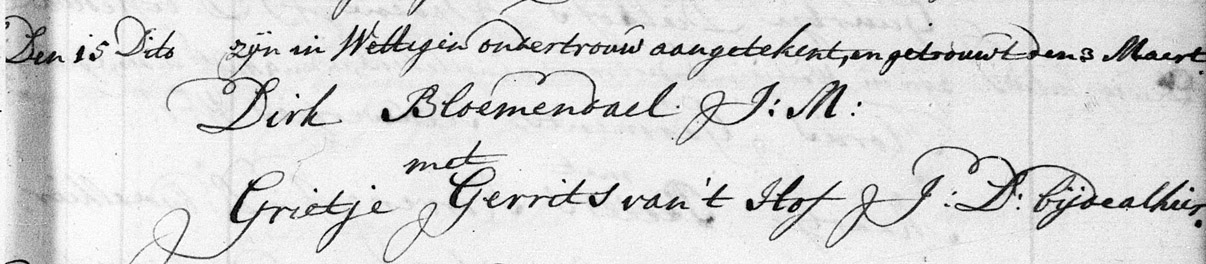 Den 15 Dito zijn in Wettigen ondertrouw aangetekent, en getrouwt den 3 Maert
Dirk Bloemendael J: M:
met
Grietje Gerrits van't Hof J: D: bijde alhier.